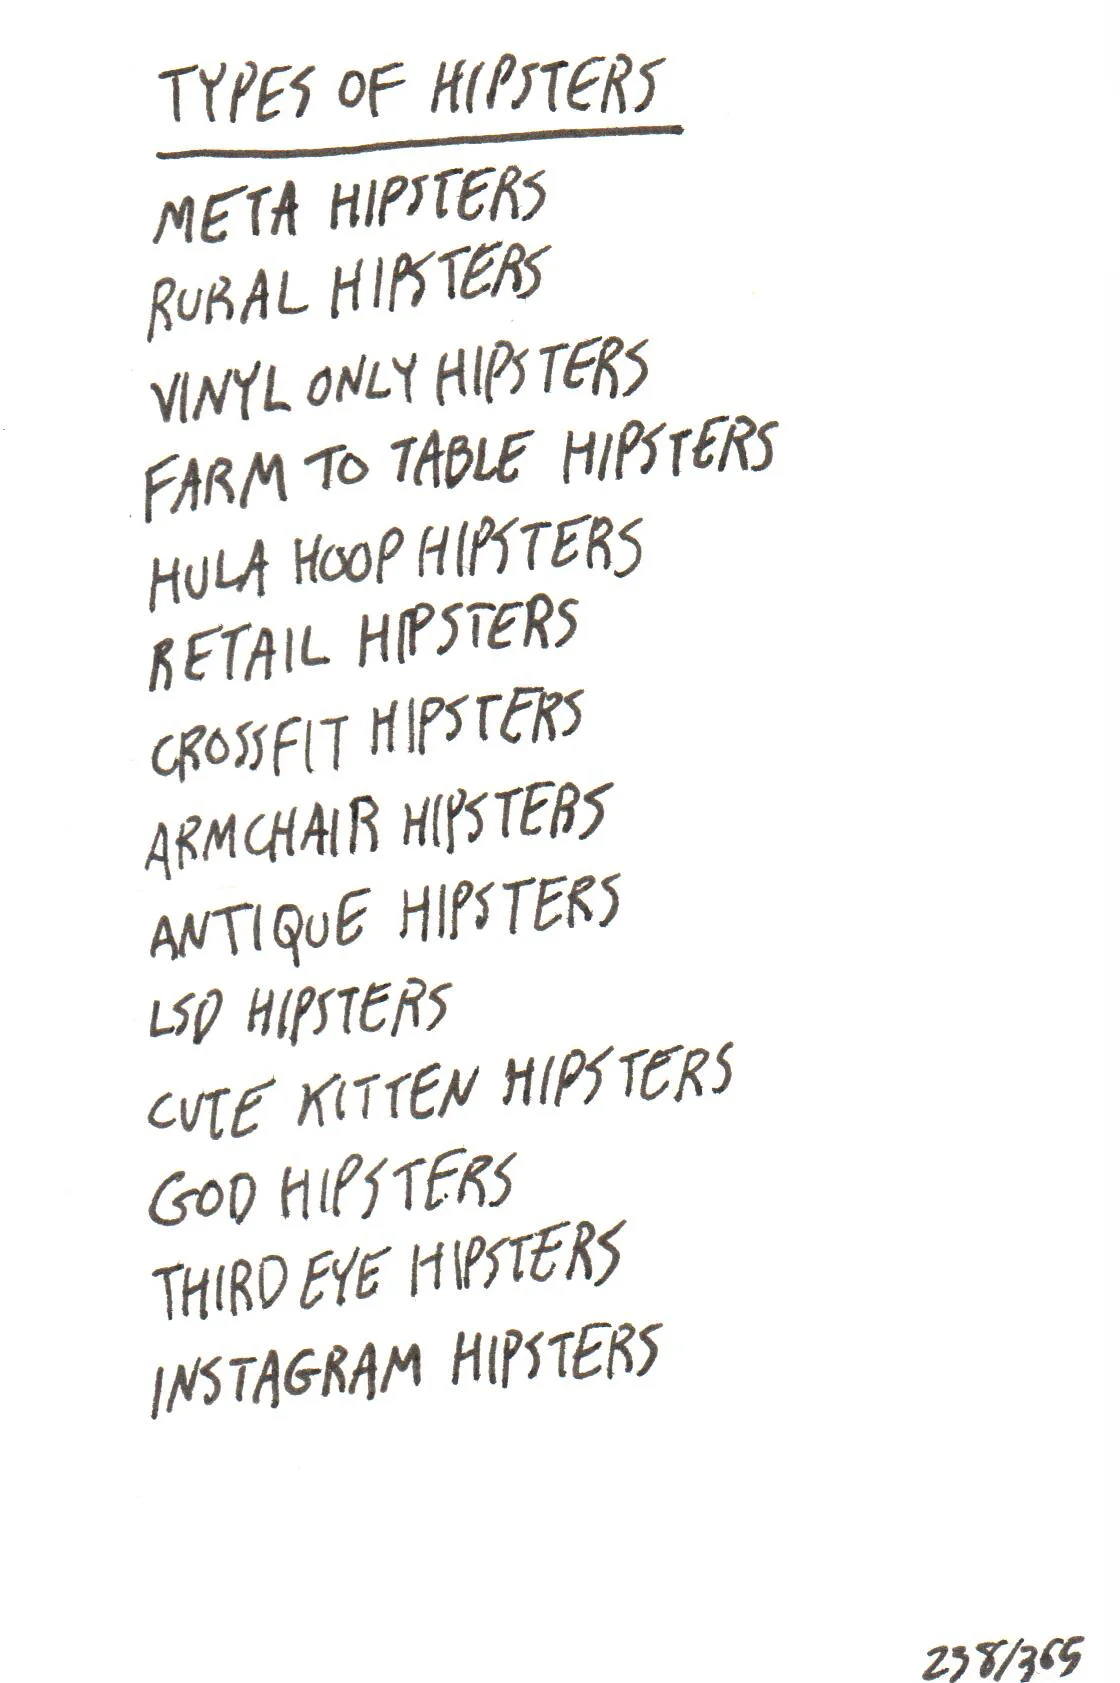 TYPES OF HIPSTERS
META HIPSTERS
RURAL HIPSTERS
VINYL ONLY HIPSTERS
FARM TO TABLE HIPSTERS
HULA HOOP HIPSTERS
RETAIL HIPSTERS
CROSSFIT HIPSTERS
ARMCHAIR HIPSTERS
ANTIQUE HIPSTERS
LSD HIPSTERS
CUTE KITTEN HIPSTERS
GOD HIPSTERS
THIRD EYE HIPSTERS
INSTAGRAM HIPSTERS
238/365